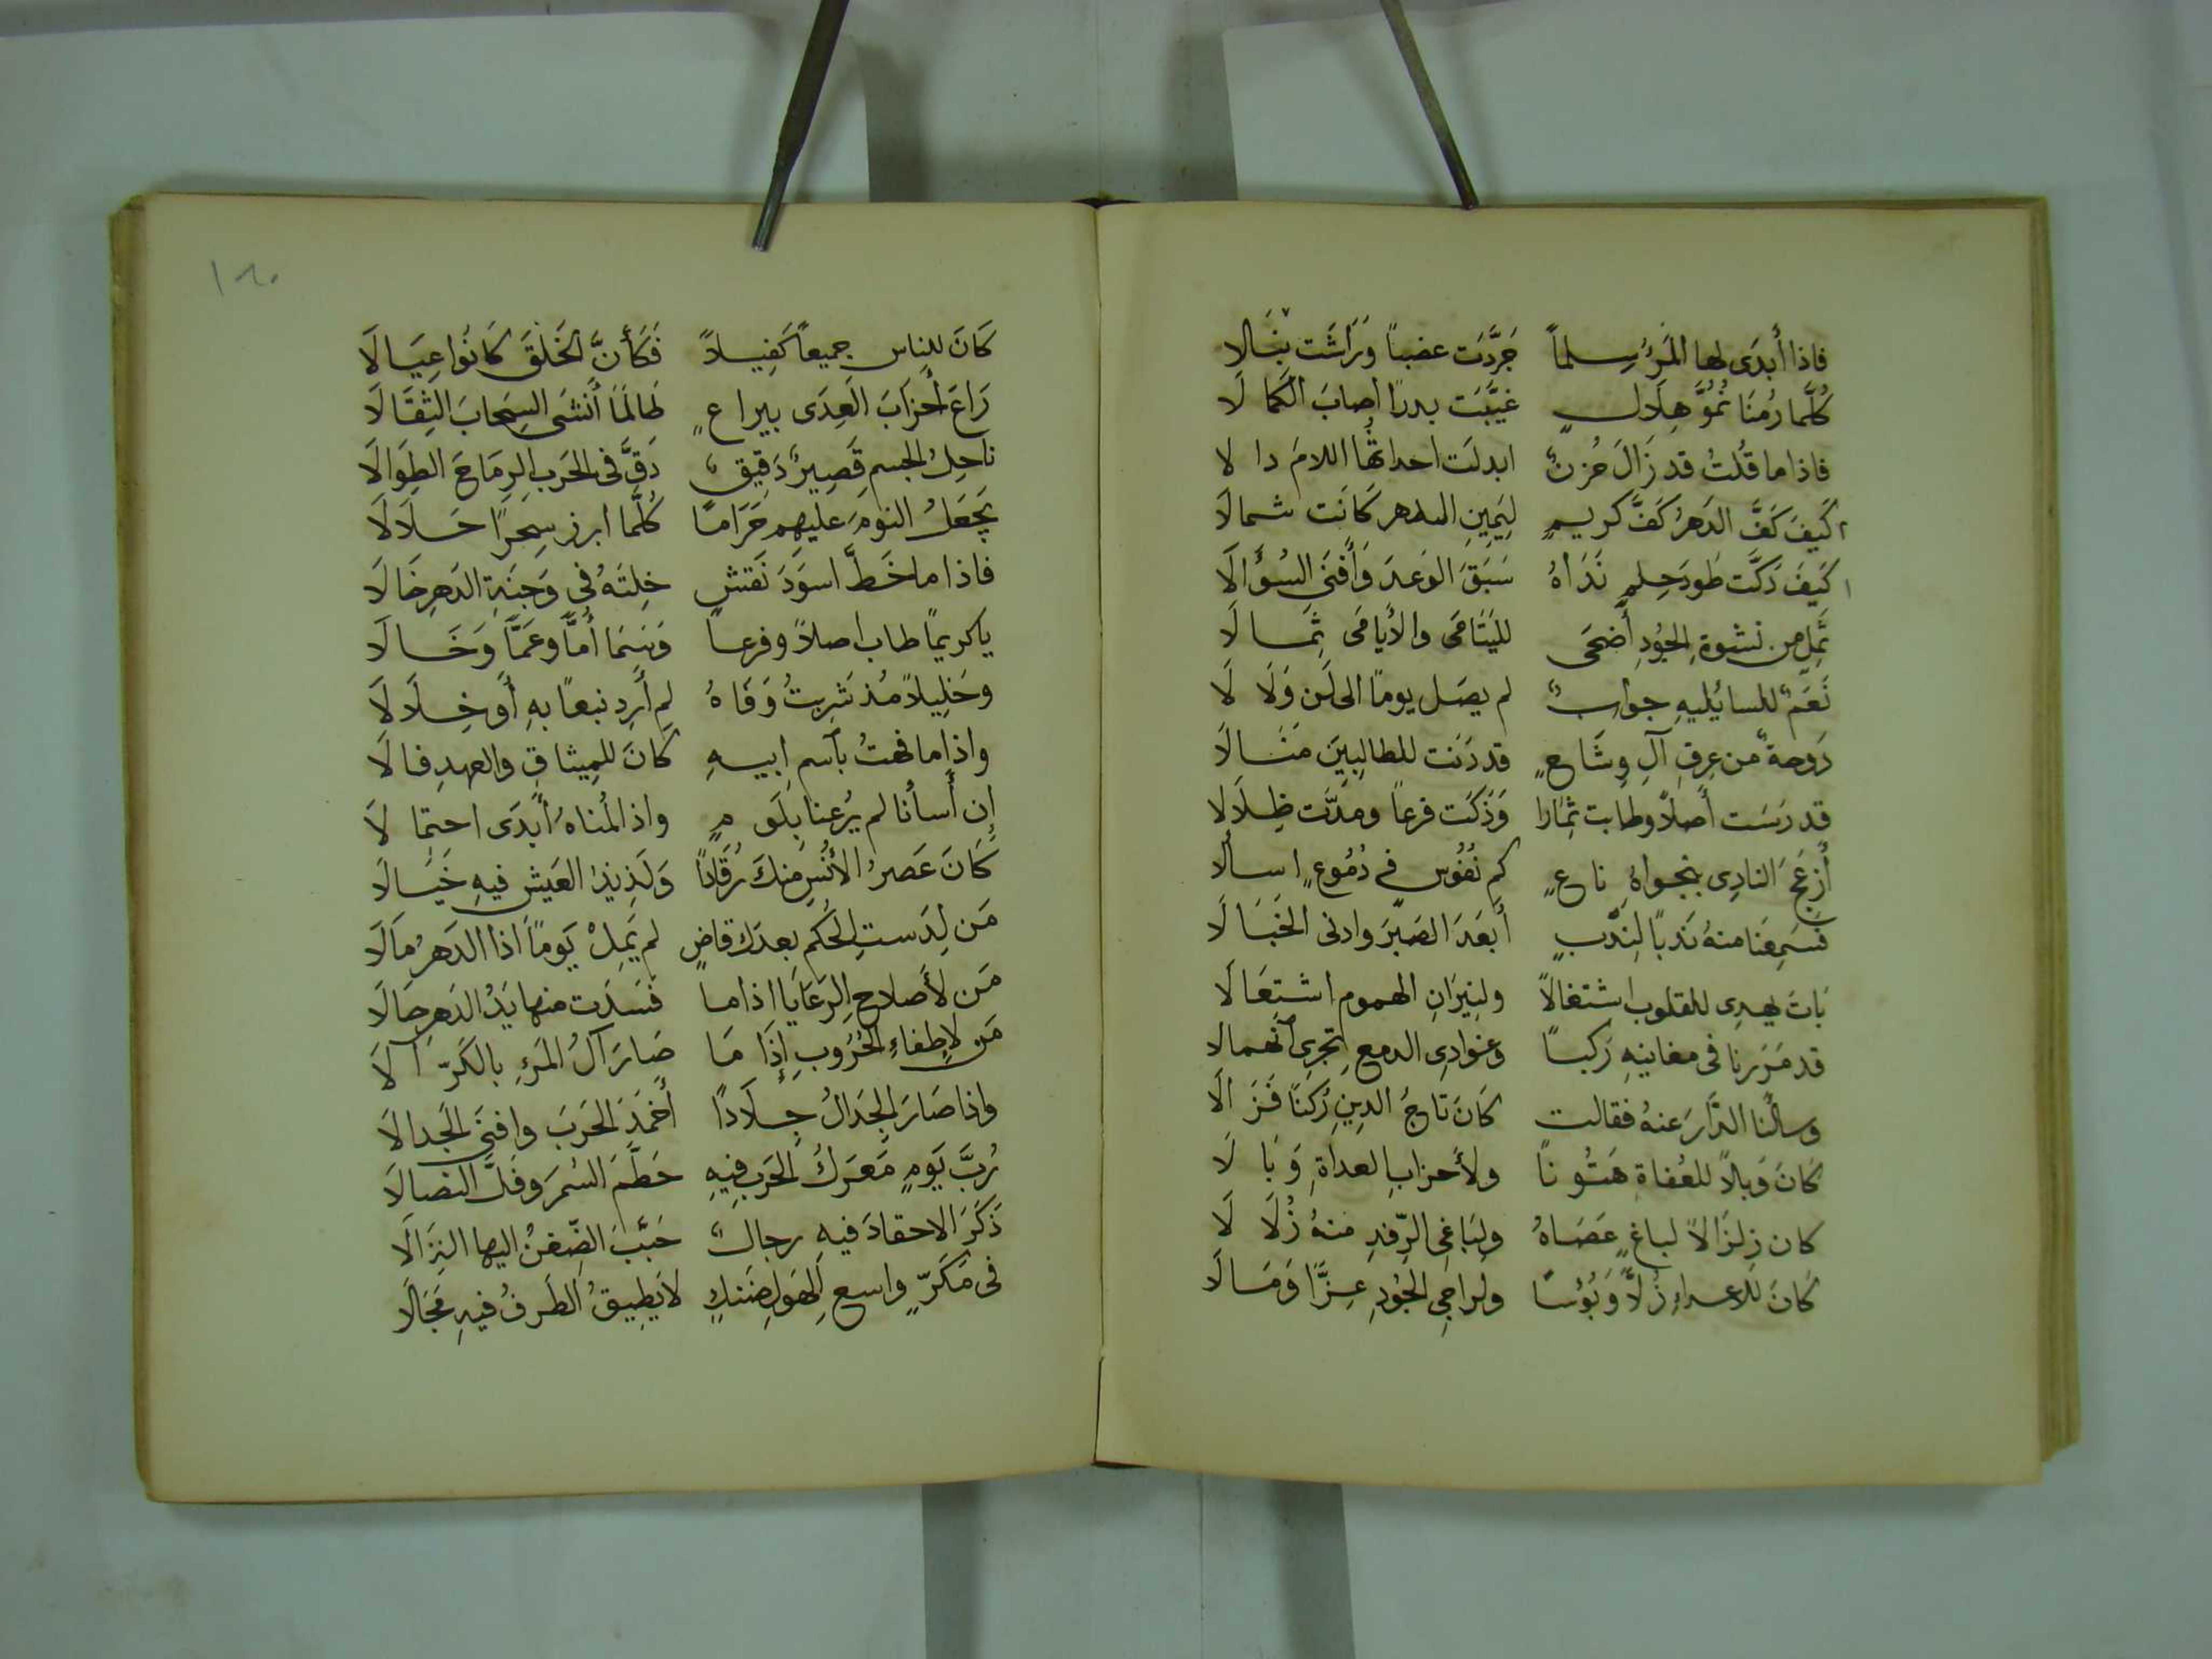 فاذا أبدَى لها المَرءُ سِلماً جَرَّدَت عضباً وَرَاشَت نبَالا
كُلَّما رُمنَا نُمُوَّ هِلَالٍ غيَّبَت بدرًا اصابَ الكَمالَا
فاذا ما قُلتُ قد زَالَ حُزنٌ ابدلَت احداثُها اللامَ دالا
كَيفَ كَفَّ الدَهرُ كَفَّ كريمٍ لِيَمِينِ الدهر كَانَت شمالَا
كَيفَ دَكَّت طَودَ حِلمٍ نَدَاهُ سَبَقَ الوَعدَ وَأَفنَى السُؤَالَا
ثَمِلٌ من نشوةِ الجُودِ أَضحَى لليَتَامَى والأَيامَى ثِمَالَا
نَعَمٌ للسائليهِ جوابٌ لم يصَل يوماً الى لَن وَلَا لَا
دَوحةٌ من عِرقِ آلِ وِشَاعٍ قد دَنَت للطالِبِينَ مَنَالَا
قد رَسَت أَصلاً وطابت ثِمارا وَزَكَت فرعاً ومدَّت ظِلَالا
أَزعَجَ النادِى بنجواهُ ناعٍ كم نفُوس فى دُمُوعٍ اسالا
فَسَمِعنَا منهُ نَدباً لِنَدبٍ أَبعَدَ الصَبرَ وادنى الخَبَالَا
بَاتَ يهدِى للقلوب اشتغالاً ولنِيرَانِ الهموم اشتِعَالَا
قد مَرَرنا فى مغانيهِ رَكباً وغوادِى الدمعِ تجرِى آنهمالا
وسالنا الدَّارَ عنهُ فقالت كَانَ تَاجُ الدِينِ رُكنًا فَزَالَا
كَانَ وَبلاً للعُفاةِ هَتُونًا ولأَحزابِ العداةِ وَبَالَا
كان زِلزَالاً لباغٍ عَصَاهُ ولِبَاغِى الرِّفدِ منهُ زُلَالَا
كَانَ للاعداءِ ذُلاًّ وَبُؤسًا ولراجِى الجُودِ عِزًّا وَمَالَا
كَانَ للِناس جميعاً كَفِيلاً فَكَأَنَّ الخَلقَ كَانُوا عِيَالَا
رَاعَ أَحزَابَ العِدَى بيراعٍ طَالَمَا أَنشَى السِحَابَ الثِقَالَا
ناحِلُ الجسم قَصِيرٌ دَقِيقٌ دَقَّ فى الحَربِ الرِمَاحَ الطِوَالَا
يَجعَلُ النومَ عليهم حَرَامًا كُلَّما ابرز سِحرًا حَلَالَا
فاذا ما خَطَّ اسوَدَ نَقشٍ خِلتَهُ فى وَجنَةِ الدَهرِ خَالَا
يا كريمًا طاب اصلاً وفرعاً وَسَمَا أُمًّا وعَمًّا وَخَالَا
وخَلِيلاً مُذ شَرِبتُ وَفَاهُ لم أَرِد نبعًا بهِ أَو خِلَالَا
واذا ما فهتُ بآسم ابيهِ كانَ للمِيثاقِ والعهدِ فالَا
إن أَسأنا لم يُرعنا بلَومٍ واذا لُمناهُ أبدَى احتِمالَا
كَانَ عَصرُ الأُنسِ منكَ رُقَادًا وَلَذِيذُ العَيشِ فيهِ خَيَالَا
مَن لِدَستِ الحُكم بعدَك قاضٍ لم يَمِلْ يَوماً اذا الدَهرُ مَالَا
مَن لأَصلاح الرَعَايَا اذاما فَسدَت منها يَدُ الدَهرِ حالَا
مَن لاِطفاءِ الحُرُوبِ إِذَا مَا صَارَ آلُ المَرءِ بالكَرّ آلَا
واذا صَارَ الجِدَالُ جِلَادًا أَخمَدَ الحَربَ وافنَى الجدالَا
رُبَّ يَومٍ مَعرَكُ الحَربِ فيهِ حَطَّمَ السُمرَ وفَلَّ النصالَا
ذَكَرَ الاحقادَ فيهِ رجالٌ حَبَّبَ الضّغنُ اليها النِزَالَا
فى مَكَرٍّ واسع الهَولِ ضَنكٍ لَا يَطِيقُ الطَرفُ فيهِ مَجَالَا